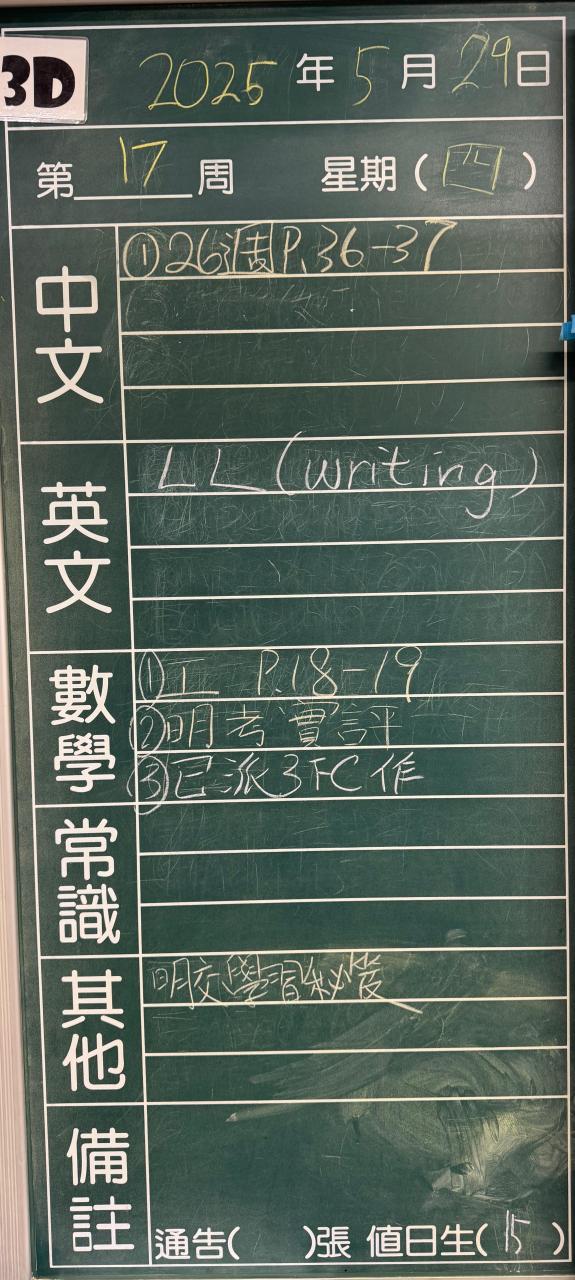 3D
2025年5月29日
第17周 星期(四)
中文
①26週P.36-37
英文
LL(writing)
數學
①工 P.18-19
②明考實評
③已派3FC作
常識
其他
明交學習秘笈
備註
通告( )張 值日生(15)